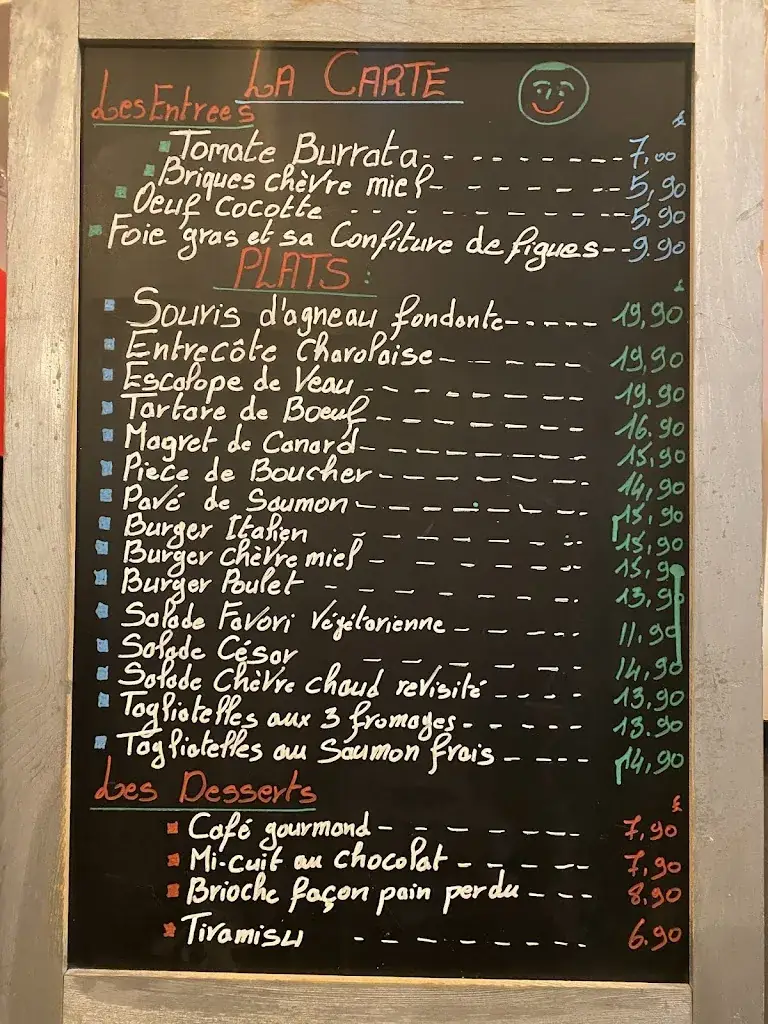 La Carte
Les Entrees
£
Tomate Burrata 7,00
Briques chèvre miel 5,90
Oeuf Cocotte 5,90
Foie gras et sa Confiture de figues 9.90
PLATS :
£
Souris d'agneau fondante 19,90
Entrecôte Charolaise 19,90
Escalope de Veau 19.90
Tartare de Boeuf 16.90
Magret de Canard 15,90
Piece de Boucher 14,90
Pavé de Saumon 15,90
Burger Italien 15,90
Burger chèvre miel 15,90
Burger Poulet 13,90
Salade Favori végétarienne 11.90
Salade César 14,90
Salade Chèvre chaud revisité 13,90
Tagliatelles aux 3 fromages 13.90
Tagliatelles au Saumon frais 14,90
Les Desserts
£
Café gourmand 7,90
Mi-cuit au chocolat 7,90
Brioche façon pain perdu 8,90
Tiramisu 6.90